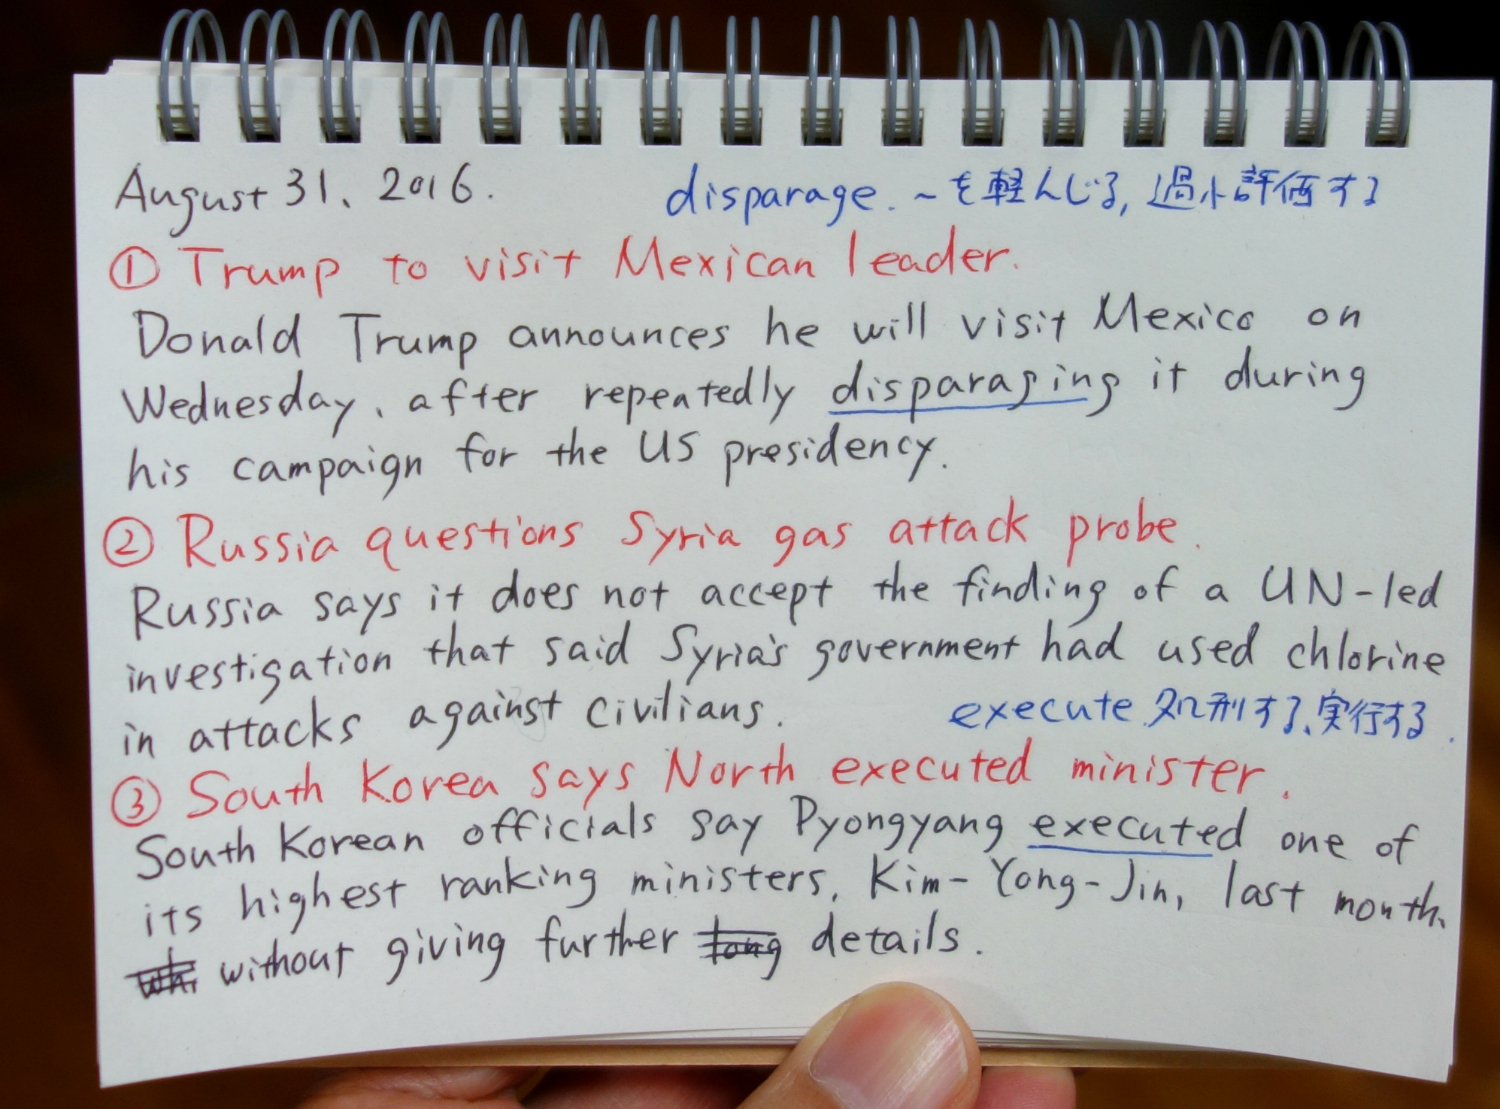 August 31, 2016. disparage. ~を軽んじる, 過小評価する
① Trump to visit Mexican leader.
Donald Trump announces he will visit Mexico on
Wednesday, after repeatedly disparaging it during
his campaign for the US presidency.
② Russia questions Syria gas attack probe.
Russia says it does not accept the finding of a UN-led
investigation that said Syria's government had used chlorine
in attacks against civilians. execute 処刑する、実行する.
③ South Korea says North executed minister.
South Korean officials say Pyongyang executed one of
its highest ranking ministers, Kim-Yong-Jin, last month,
without giving further details.